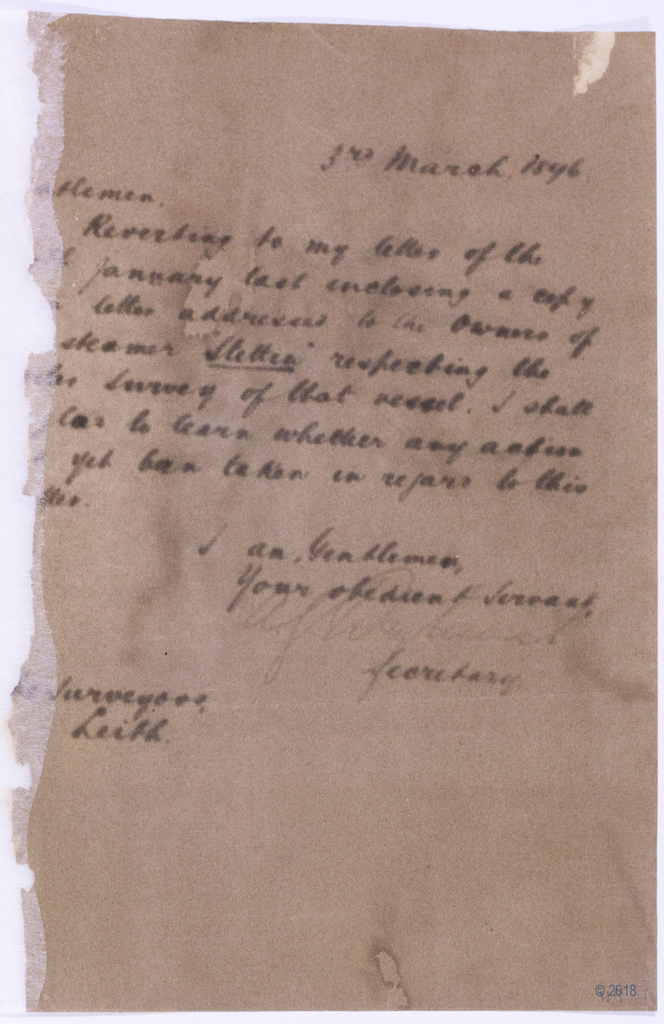 3rd March 1896.
tlemen.
Reverting to my letter of the
January last enclosing a copy
letter addressed to the Owners of
steamer "Stettin" respecting the
survey of that vessel. I shall
to learn whether any action
yet been taken in regard to this
I am, Gentlemen,
Your obedient Servant,
Secretary
Surveyors,
Leith.
© 2018